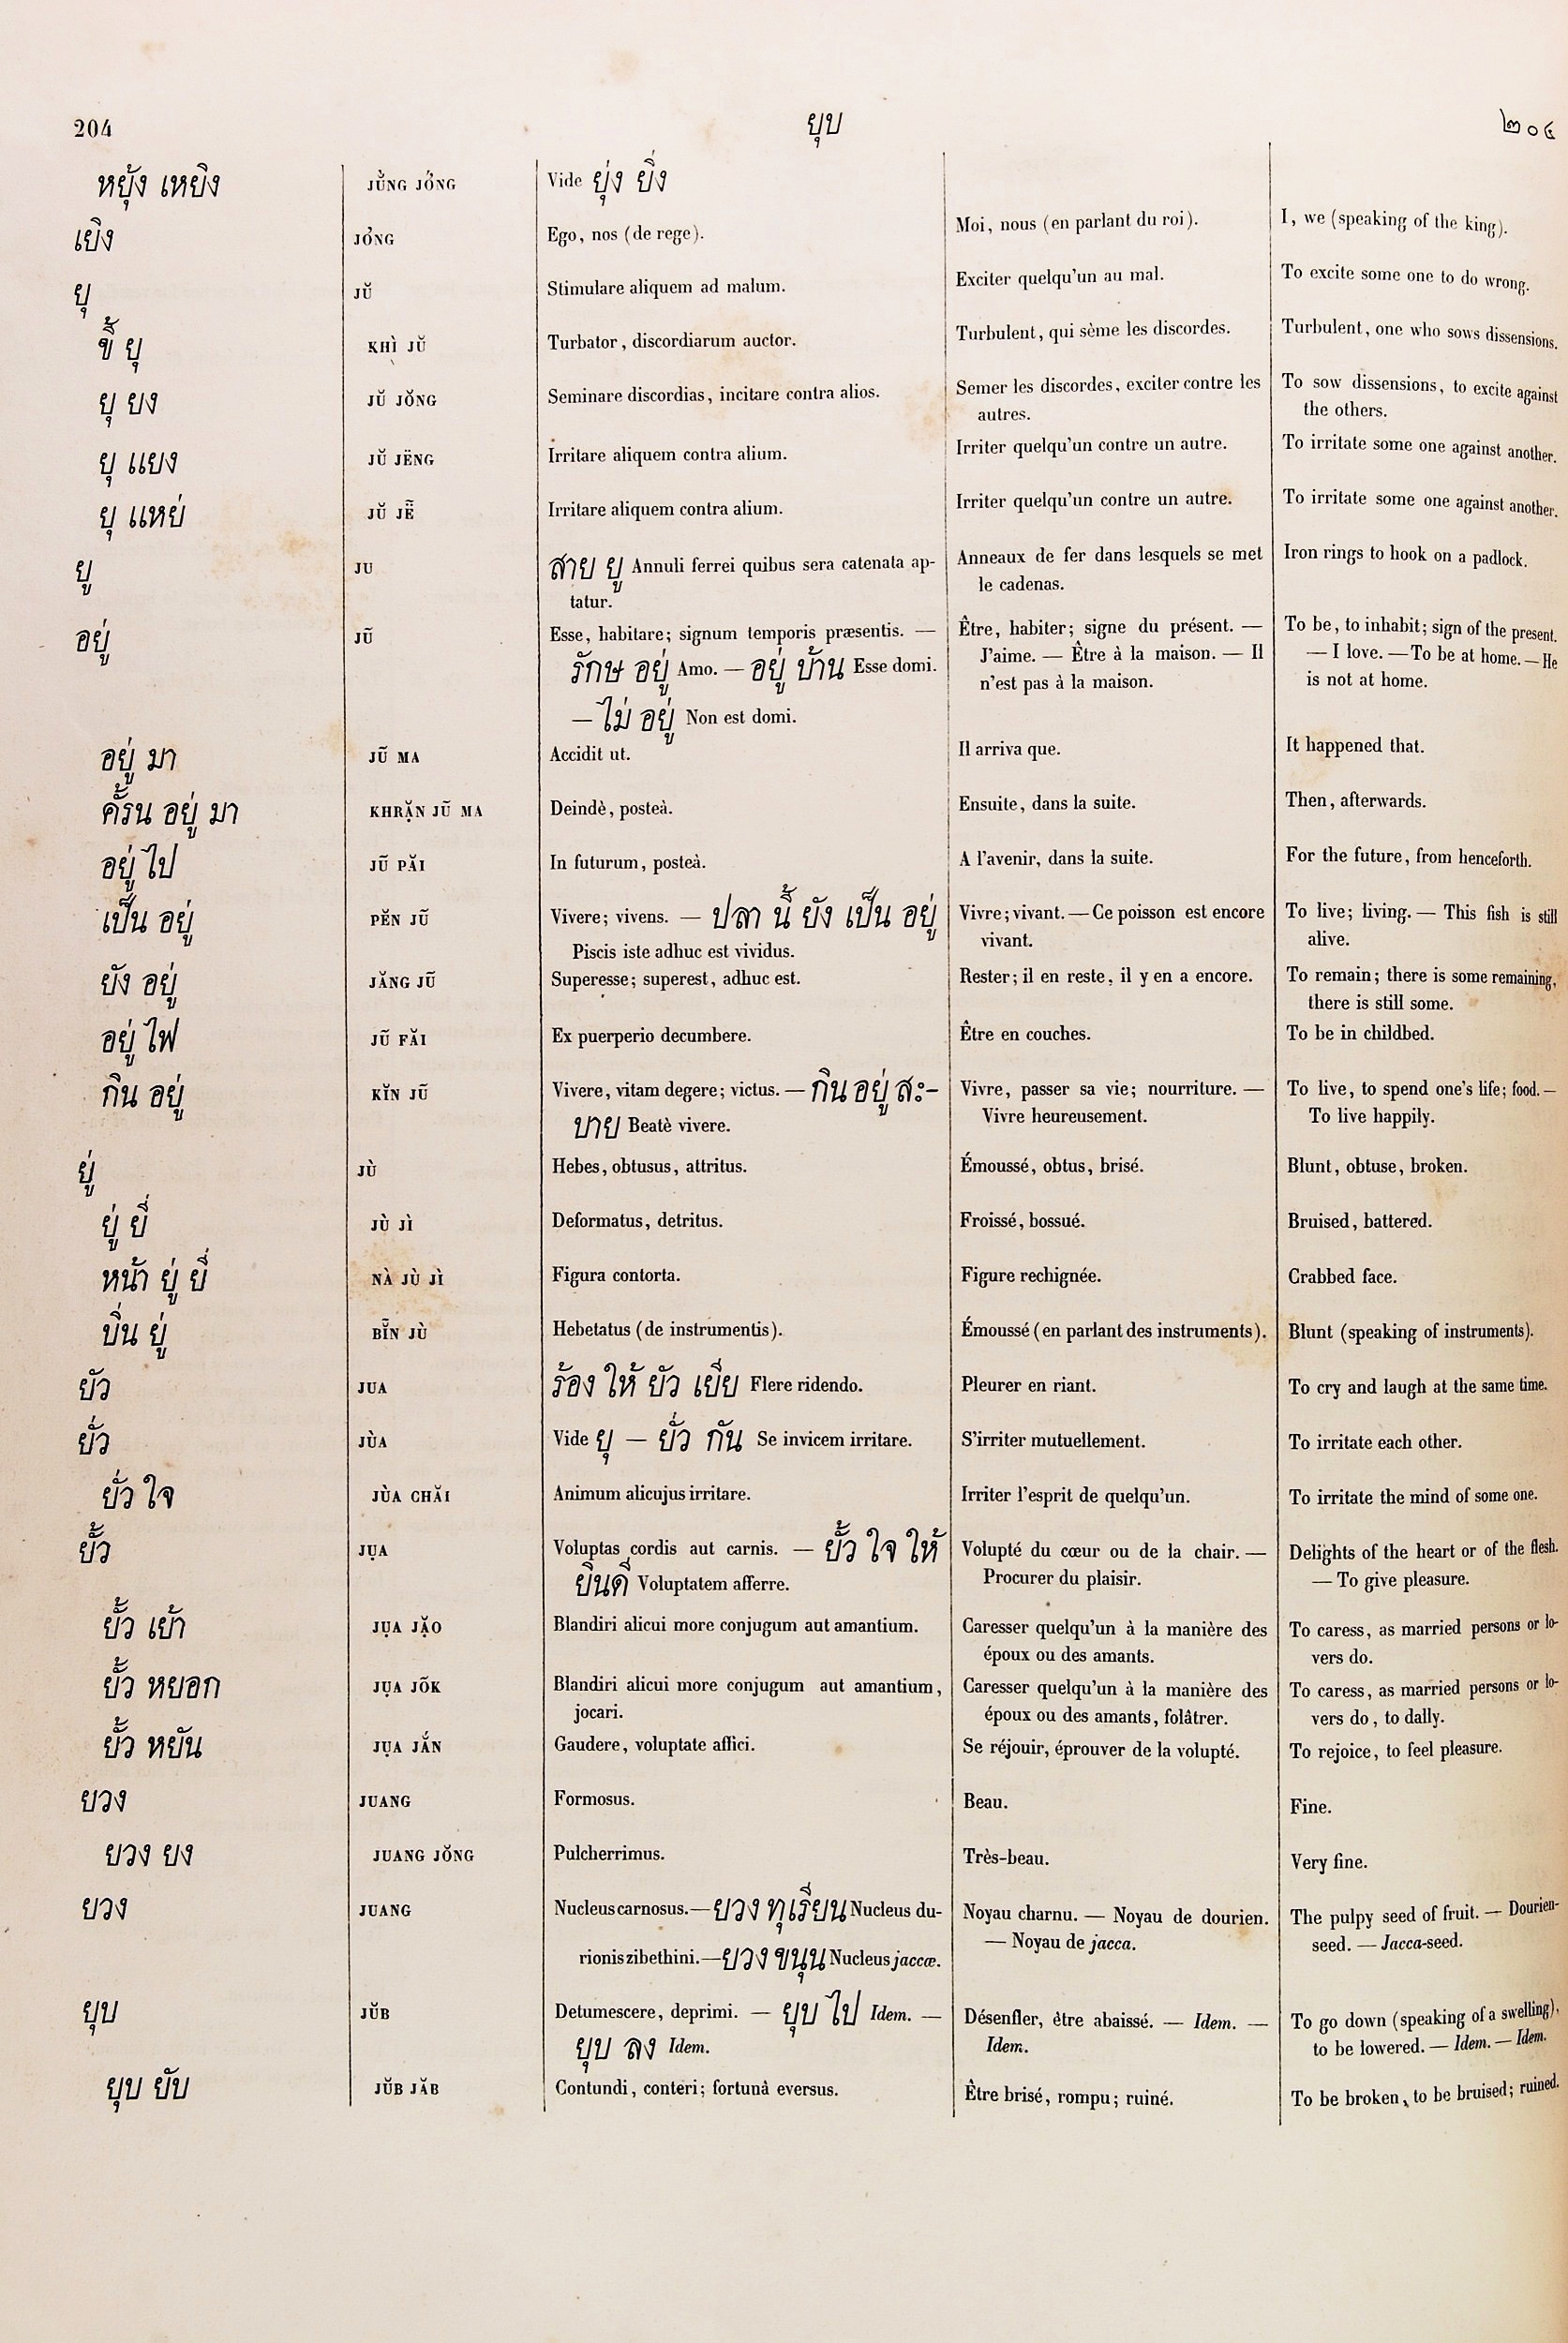 204 ยุบ ๒๐๔
หยุ้ง เหยิง JŬ̉NG JO᷄NG Vide ยุ่ง ยิ่ง
เยิง JO᷄NG Ego, nos (de rege). Moi, nous (en parlant du roi). I, we (speaking of the king).
ยุ JŬ Stimulare aliquem ad malum. Exciter quelqu'un au mal. To excite some one to do wrong.
ขี้ ยุ KHÌ JŬ Turbator, discordiarum auctor. Turbulent, qui sème les discordes. Turbulent, one who sows dissensions.
ยุ ยง JŬ JŎNG Seminare discordias, incitare contra alios. Semer les discordes, exciter contre les To sow dissensions, to excite against
autres. the others.
ยุ แยง JŬ JËNG Irritare aliquem contra alium. Irriter quelqu'un contre un autre. To irritate some one against another.
ยุ แหย่ JŬ JË̃ Irritare aliquem contra alium. Irriter quelqu'un contre un autre. To irritate some one against another.
ยู JU สาย ยู Annuli ferrei quibus sera catenata ap- Anneaux de fer dans lesquels se met Iron rings to hook on a padlock.
tatur. le cadenas.
อยู่ JŨ Esse, habitare; signum temporis præsentis. — Être, habiter; signe du présent. — To be, to inhabit; sign of the present.
รักษ อยู่ Amo. — อยู่ บ้าน Esse domi. J'aime. — Être à la maison. — Il — I love. — To be at home. — He
— ไม่ อยู่ Non est domi. n'est pas à la maison. is not at home.
อยู่ มา JŨ MA Accidit ut. Il arriva que. It happened that.
ครั้น อยู่ มา KHRẶN JŨ MA Deindè, posteà. Ensuite, dans la suite. Then, afterwards.
อยู่ ไป JŨ PĂI In futurum, posteà. A l'avenir, dans la suite. For the future, from henceforth.
เป็น อยู่ PĔN JŨ Vivere; vivens. — ปลา นี้ ยัง เป็น อยู่ Vivre; vivant. — Ce poisson est encore To live; living. — This fish is still
Piscis iste adhuc est vividus. vivant. alive.
ยัง อยู่ JĂNG JŨ Superesse; superest, adhuc est. Rester; il en reste, il y en a encore. To remain; there is some remaining,
there is still some.
อยู่ ไฟ JŨ FĂI Ex puerperio decumbere. Être en couches. To be in childbed.
กิน อยู่ KĬN JŨ Vivere, vitam degere; victus. — กิน อยู่ สะ- Vivre, passer sa vie; nourriture. — To live, to spend one's life; food. —
บาย Beatè vivere. Vivre heureusement. To live happily.
ยู่ JÙ Hebes, obtusus, attritus. Émoussé, obtus, brisé. Blunt, obtuse, broken.
ยู่ ยี่ JÙ JÌ Deformatus, detritus. Froissé, bossué. Bruised, battered.
หน้า ยู่ ยี่ NÀ JÙ JÌ Figura contorta. Figure rechignée. Crabbed face.
บิ่น ยู่ BĨN JÙ Hebetatus (de instrumentis). Émoussé (en parlant des instruments). Blunt (speaking of instruments).
ยัว JUA ร้อง ให้ ยัว เยีย Flere ridendo. Pleurer en riant. To cry and laugh at the same time.
ยั่ว JÙA Vide ยุ — ยั่ว กัน Se invicem irritare. S'irriter mutuellement. To irritate each other.
ยั่ว ใจ JÙA CHĂI Animum alicujus irritare. Irriter l'esprit de quelqu'un. To irritate the mind of some one.
ยั้ว JỤA Voluptas cordis aut carnis. — ยั้ว ใจ ให้ Volupté du cœur ou de la chair. — Delights of the heart or of the flesh.
ยินดี Voluptatem afferre. Procurer du plaisir. — To give pleasure.
ยั้ว เย้า JỤA JẶO Blandiri alicui more conjugum aut amantium. Caresser quelqu'un à la manière des To caress, as married persons or lo-
époux ou des amants. vers do.
ยั้ว หยอก JỤA JÕK Blandiri alicui more conjugum aut amantium, Caresser quelqu'un à la manière des To caress, as married persons or lo-
jocari. époux ou des amants, folâtrer. vers do, to dally.
ยั้ว หยัน JỤA JẮN Gaudere, voluptate affici. Se réjouir, éprouver de la volupté. To rejoice, to feel pleasure.
ยวง JUANG Formosus. Beau. Fine.
ยวง ยง JUANG JŎNG Pulcherrimus. Très-beau. Very fine.
ยวง JUANG Nucleus carnosus. — ยวง ทุเรียน Nucleus du- Noyau charnu. — Noyau de dourien. The pulpy seed of fruit. — Dourien-
rionis zibethini. — ยวง ขนุน Nucleus jaccæ. — Noyau de jacca. seed. — Jacca-seed.
ยุบ JŬB Detumescere, deprimi. — ยุบ ไป Idem. — Désenfler, être abaissé. — Idem. — To go down (speaking of a swelling),
ยุบ ลง Idem. Idem. to be lowered. — Idem. — Idem.
ยุบ ยับ JŬB JĂB Contundi, conteri; fortunâ eversus. Être brisé, rompu; ruiné. To be broken, to be bruised; ruined.